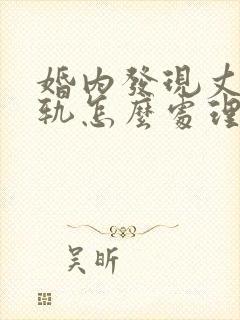 婚內發現丈
軌怎麼處理
吴昕